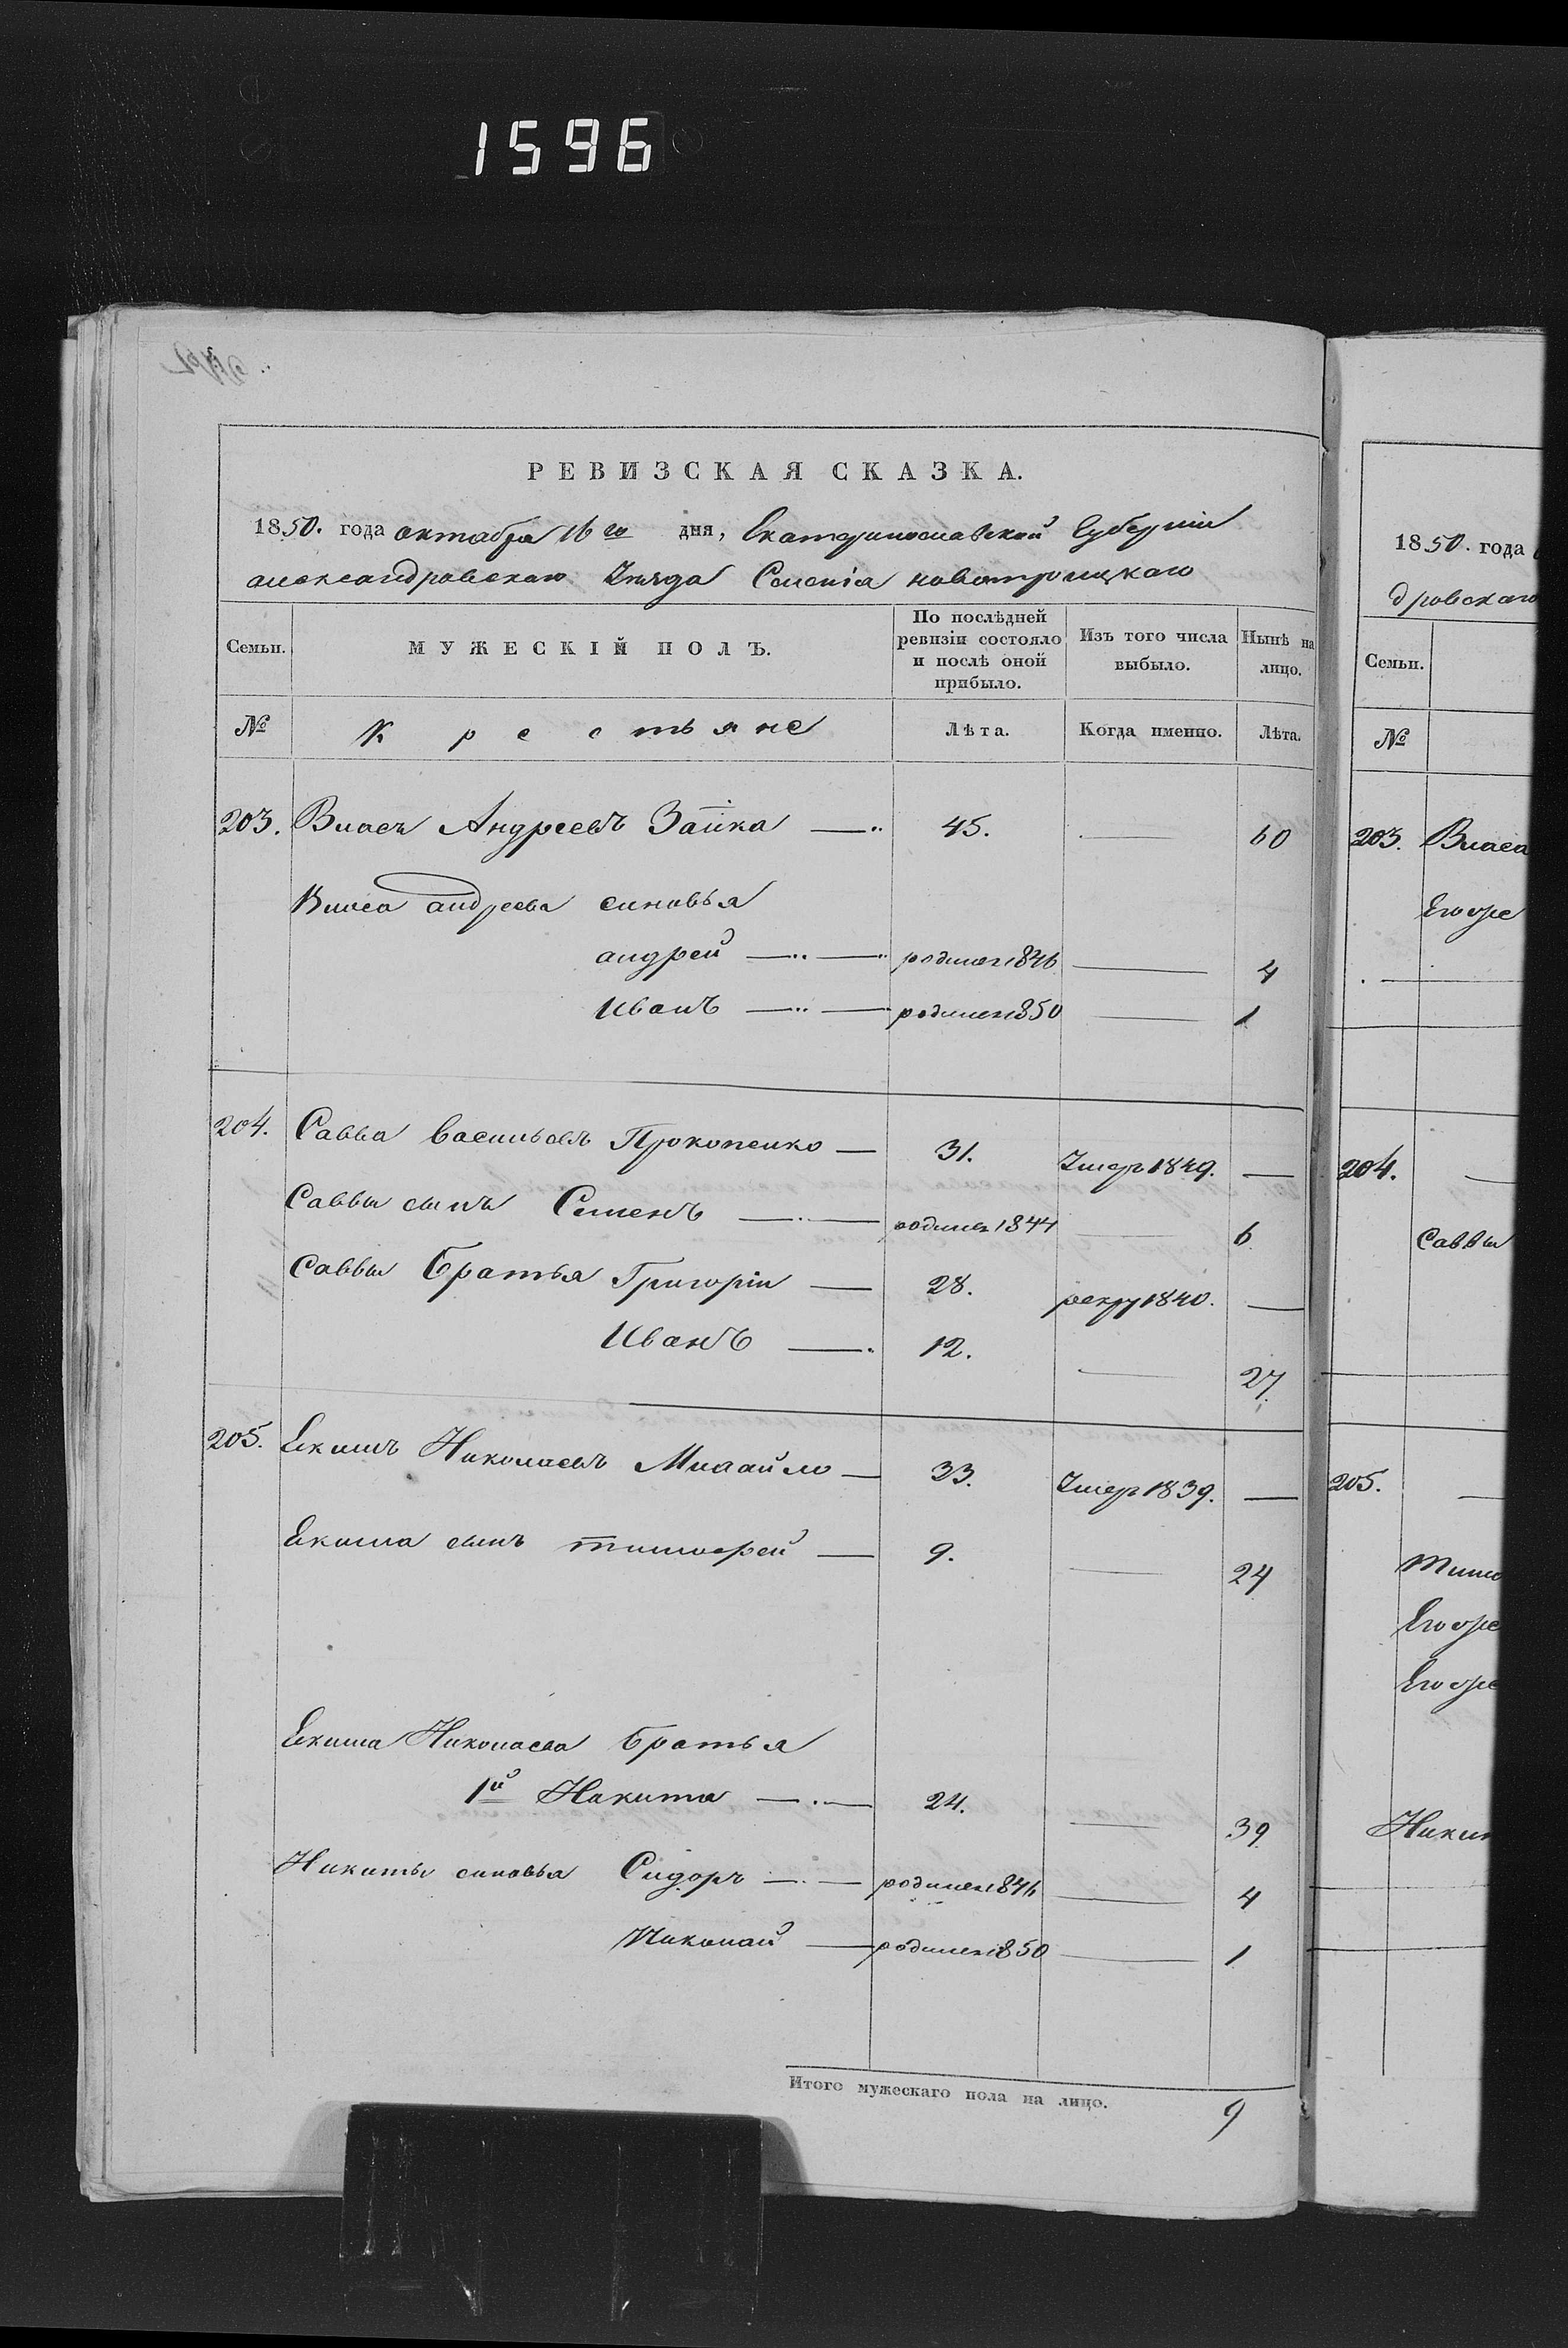 1596
РЕВИЗСКАЯ СКАЗКА.
1850. года октабра 16го дня, Екатеринославской Губернии
александровскаго Уезда Селенія новотроицкаго
Семьи. МУЖЕСКІЙ ПОЛЪ. По послѣдней ревизіи состояло и послѣ оной прибыло. Изъ того числа выбыло. Нынѣ на лицо.
№ Крестьяне Лѣта. Когда именно. Лѣта.
203. Власъ Андреевъ Заика 45. — 60
Власа андреева синовья
андрей родился 1846 — 4
Иванъ родился 1850 — 1
204. Савва Васильевъ Прокопенко — 31. Умеръ 1849. —
Саввы сынъ Семенъ — родился 1844 — 6
Саввы Братья Григорій — 28. рекру 1840. —
Иванъ — 12. — 27
205. Екимъ Николаевъ Михайло — 33. Умеръ 1839. —
Екима сынъ тимофей — 9. — 24
Екима Николаева Братья
1й Никита — 24. — 39
Никиты синовья Сидоръ — родился 1846 — 4
Николай — родился 1850 — 1
Итого мужескаго пола на лицо. 9
1850. года
дровскаго
Семьи.
№
203. Власа
Его же
204. —
Саввы
205. —
Тимо
Его же
Его же
Никит